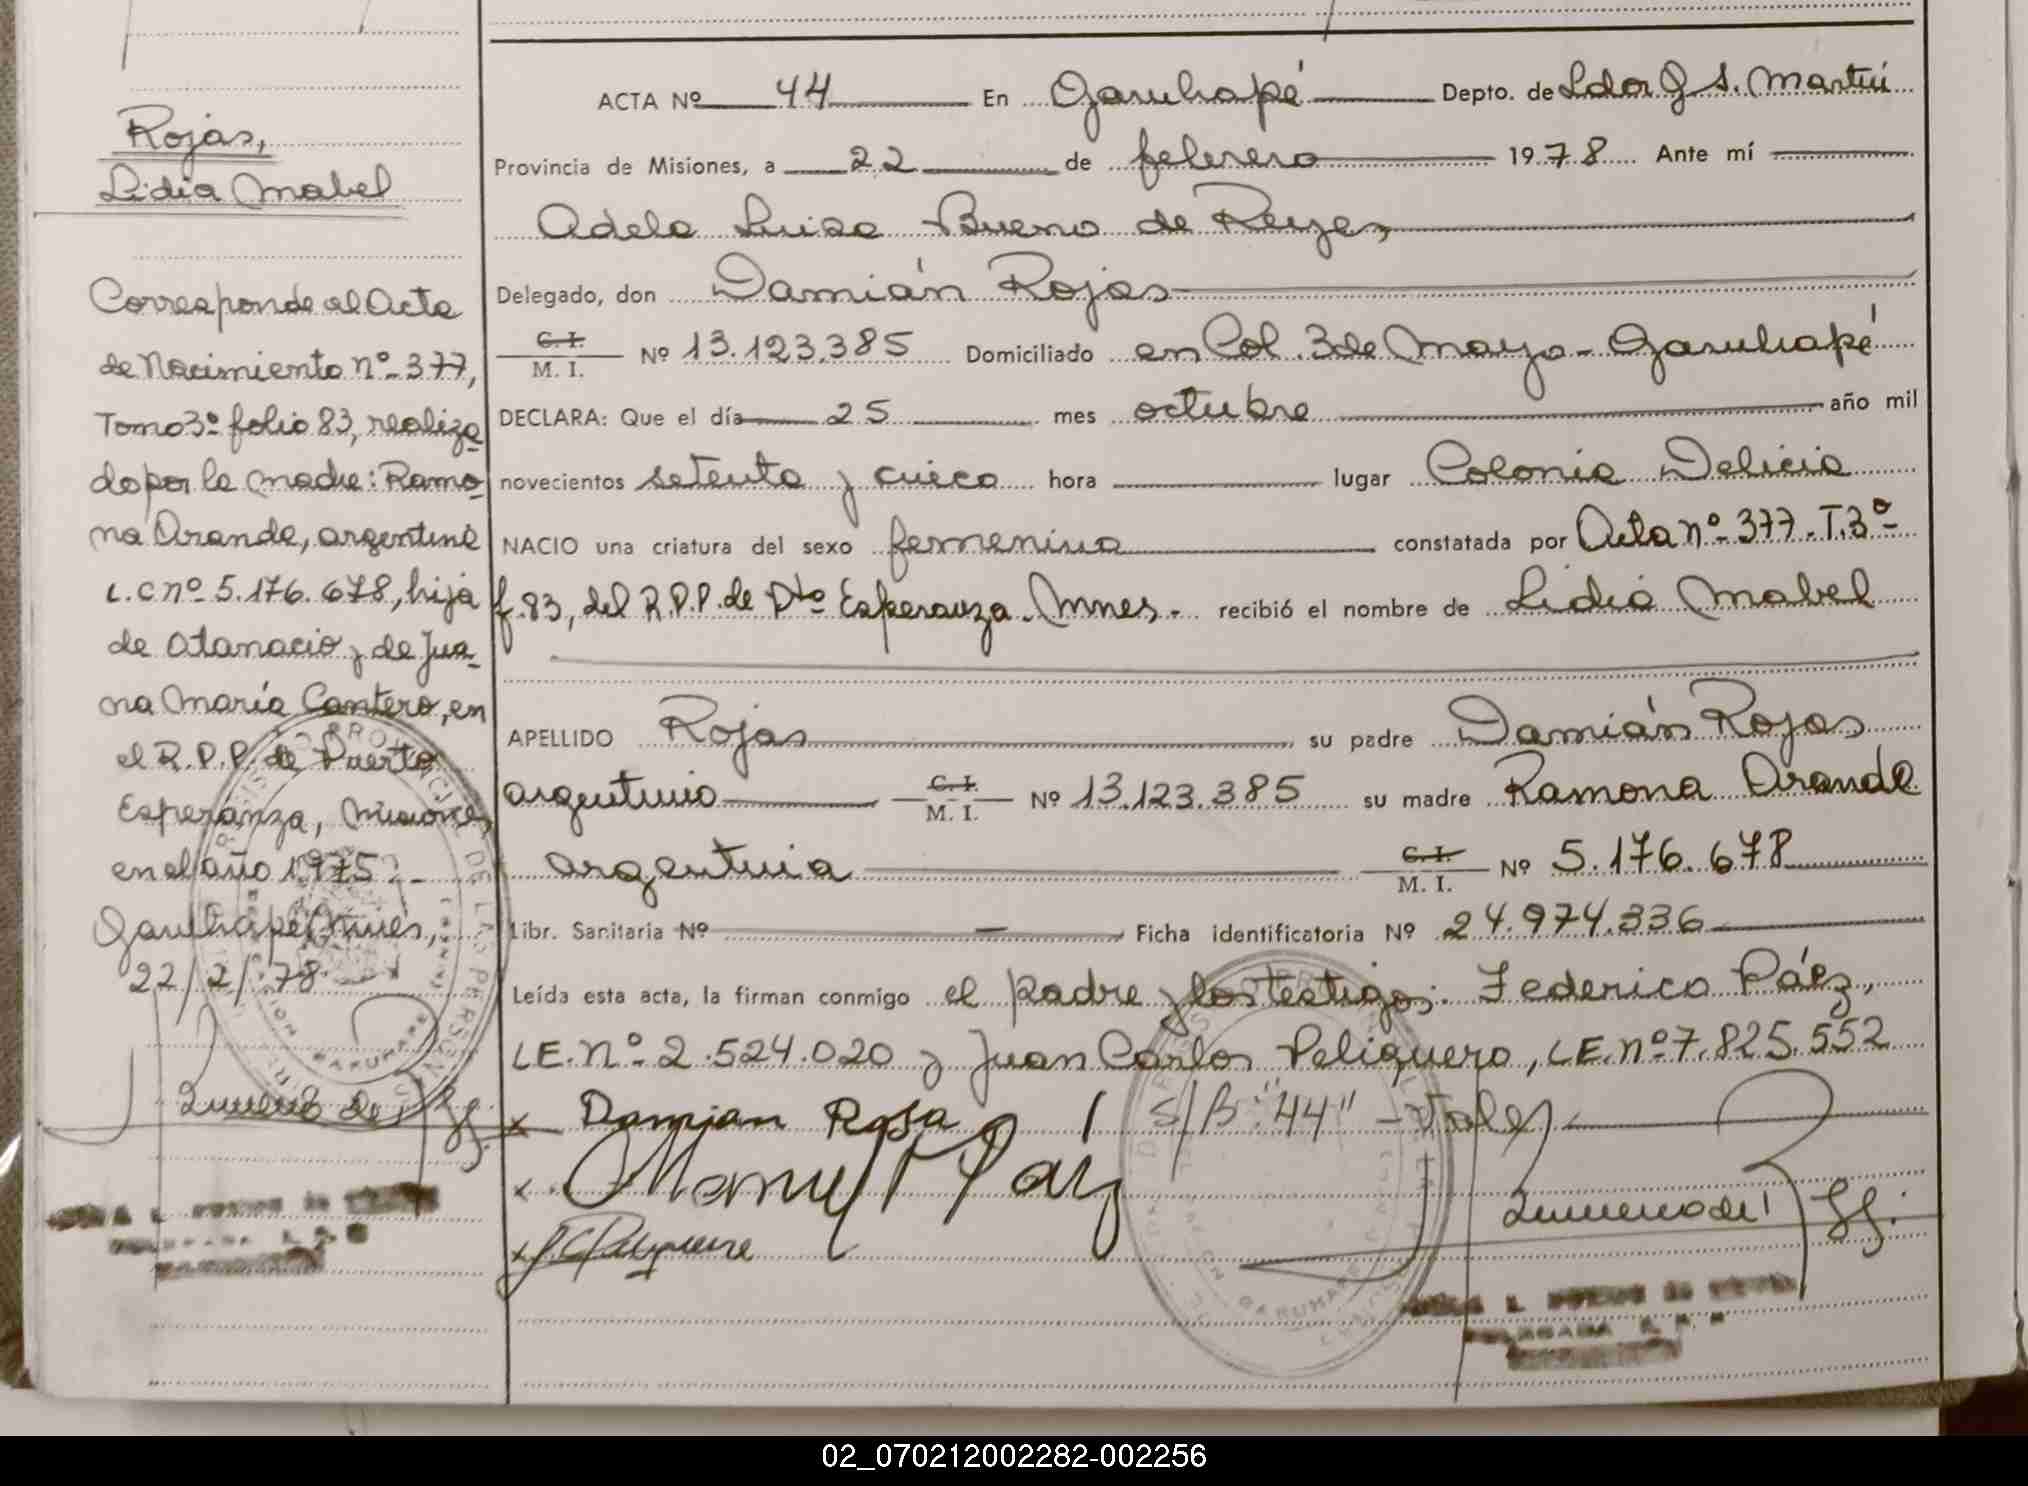 Rojas,
Lidia Mabel
Corresponde al Acta
de Nacimiento nº 377,
Tomo 3º folio 83, realiza
do por la madre: Ramo
na Aranda, argentina
L.C nº 5.176.678, hija
de Atanacio y de Jua-
na María Cantero, en
el R.P.P. de Puerto
Esperanza, Misiones,
en el año 1975.-
Garuhapé Mnes,
22/2/78.
ACTA Nº 44 En Garuhapé Depto. de Ldor G S. Martín
Provincia de Misiones, a 22 de febrero 1978 Ante mí
Adela Luisa Bueno de Reyes,
Delegado, don Damián Rojas
C. I.
M. I. Nº 13.123.385 Domiciliado en Col. 3 de Mayo - Garuhapé
DECLARA: Que el día 25 mes octubre año mil
novecientos setenta y cinco hora lugar Colonia Delicia
NACIO una criatura del sexo femenino constatada por Acta nº 377 - T.3º-
f.83, del R.P.P. de Pto Esperanza. Mnes.- recibió el nombre de Lidia Mabel
APELLIDO Rojas su padre Damián Rojas
argentino C. I. M. I. Nº 13.123.385 su madre Ramona Aranda
argentina C. I. M. I. Nº 5.176.678
Libr. Sanitaria Nº — Ficha identificatoria Nº 24.974.336
Leída esta acta, la firman conmigo el padre y los testigos: Federico Páez,
LE. nº 2.524.020 y Juan Carlos Peliquero, LE. nº 7.825.552
x Damian Rosa S/B "44" - Vale
x
x J.C.
DELEGADA
02_070212002282-002256